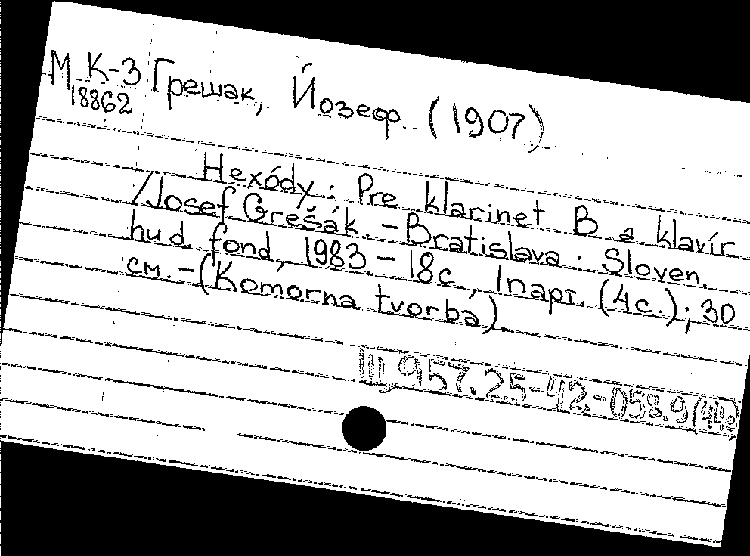 М К-3 Грешак, Йозеф. (1907)
18862
Hexódy: Pre klarinet B a klavír
/Josef Grešák. - Bratislava: Sloven.
hud. fond, 1983. - 18с., 1парт. (4с.); 30
см. - (Komorna tvorba)
III, 957.25-42-058.9